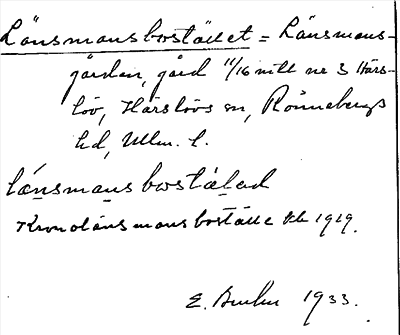 Länsmansbostället = Länsmans-
gården, gård 11/16 mtl nr 3 Härs-
löv, Härslövs sn, Rönnebergs
hd, Mlm. l.
länsmansbostälad
Kronolänsmansboställe till 1919.
E. 1933.